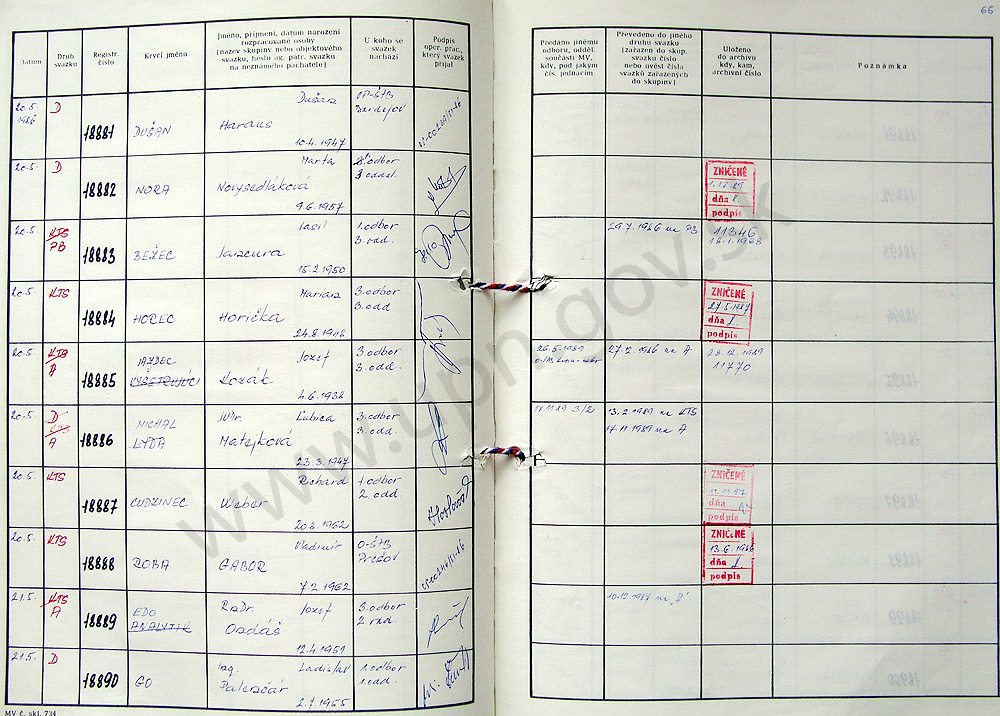 66
Datum
Druh svazku
Registr. číslo
Krycí jméno
Jméno, příjmení, datum narození
rozpracované osoby
[název skupiny nebo objektového
svazku, heslo ag. pátr. svazku
na neznámého pachatele]
U koho se
svazek
nachází
Podpis
oper. prac.,
který svazek
přijal
Předáno jinému
odboru, odděl.
součásti MV,
kdy, pod jakým
čís. jednacím
Převedeno do jiného
druhu svazku
[zařazen do skup.
svazku číslo
nebo uvést čísla
svazků zařazených
do skupiny]
Uloženo
do archivu
kdy, kam,
archivní číslo
Poznámka
20.5. 1986
D
18881
DUŠAN
Dušan
Haraus
10.4.1947
OP-ŠTB
Bardejov
20.5.
D
18882
NORA
Marta
Novysedláková
9.6.1957
odbor
3. odd.
ZNIČENÉ
dňa
podpis
20.5.
KTS
PB
18883
BEŽEC
Vasil
Jancura
15.2.1950
1. odbor
3. odd.
29.7.1986 na PB
11346
18.1.1988
20.5.
KTS
18884
HOREC
Marian
Horička
24.8.1948
3. odbor
3. odd.
ZNIČENÉ
27.5.1987
dňa
podpis
20.5.
A
18885
Jozef
Kozák
4.6.1932
3. odbor
3. odd.
26.5.1989
27.12.1986 na A
28.12.1989
11770
20.5.
D
A
18886
MICHAL
LYDA
JUDr. Ľubica
Matejková
23.3.1947
3. odbor
3. odd.
13.2.1989 na KTS
17.11.1989 na A
20.5.
KTS
18887
CUDZINEC
Richard
Weber
20.8.1962
1. odbor
2. odd.
ZNIČENÉ
dňa
podpis
20.5.
KTS
18888
ROBA
Vladimír
GABOR
7.2.1962
O-ŠTB
Prešov
ZNIČENÉ
13.6.1986
dňa
podpis
21.5.
KTS
A
18889
EDO
ANALYTIK
Jozef
Ondáš
12.4.1951
3. odbor
2. odd.
21.5.
D
18890
GO
Ing. Ladislav
Palenčár
2.7.1955
1. odbor
1. odd.
MV č. skl. 734
www.upn.gov.sk